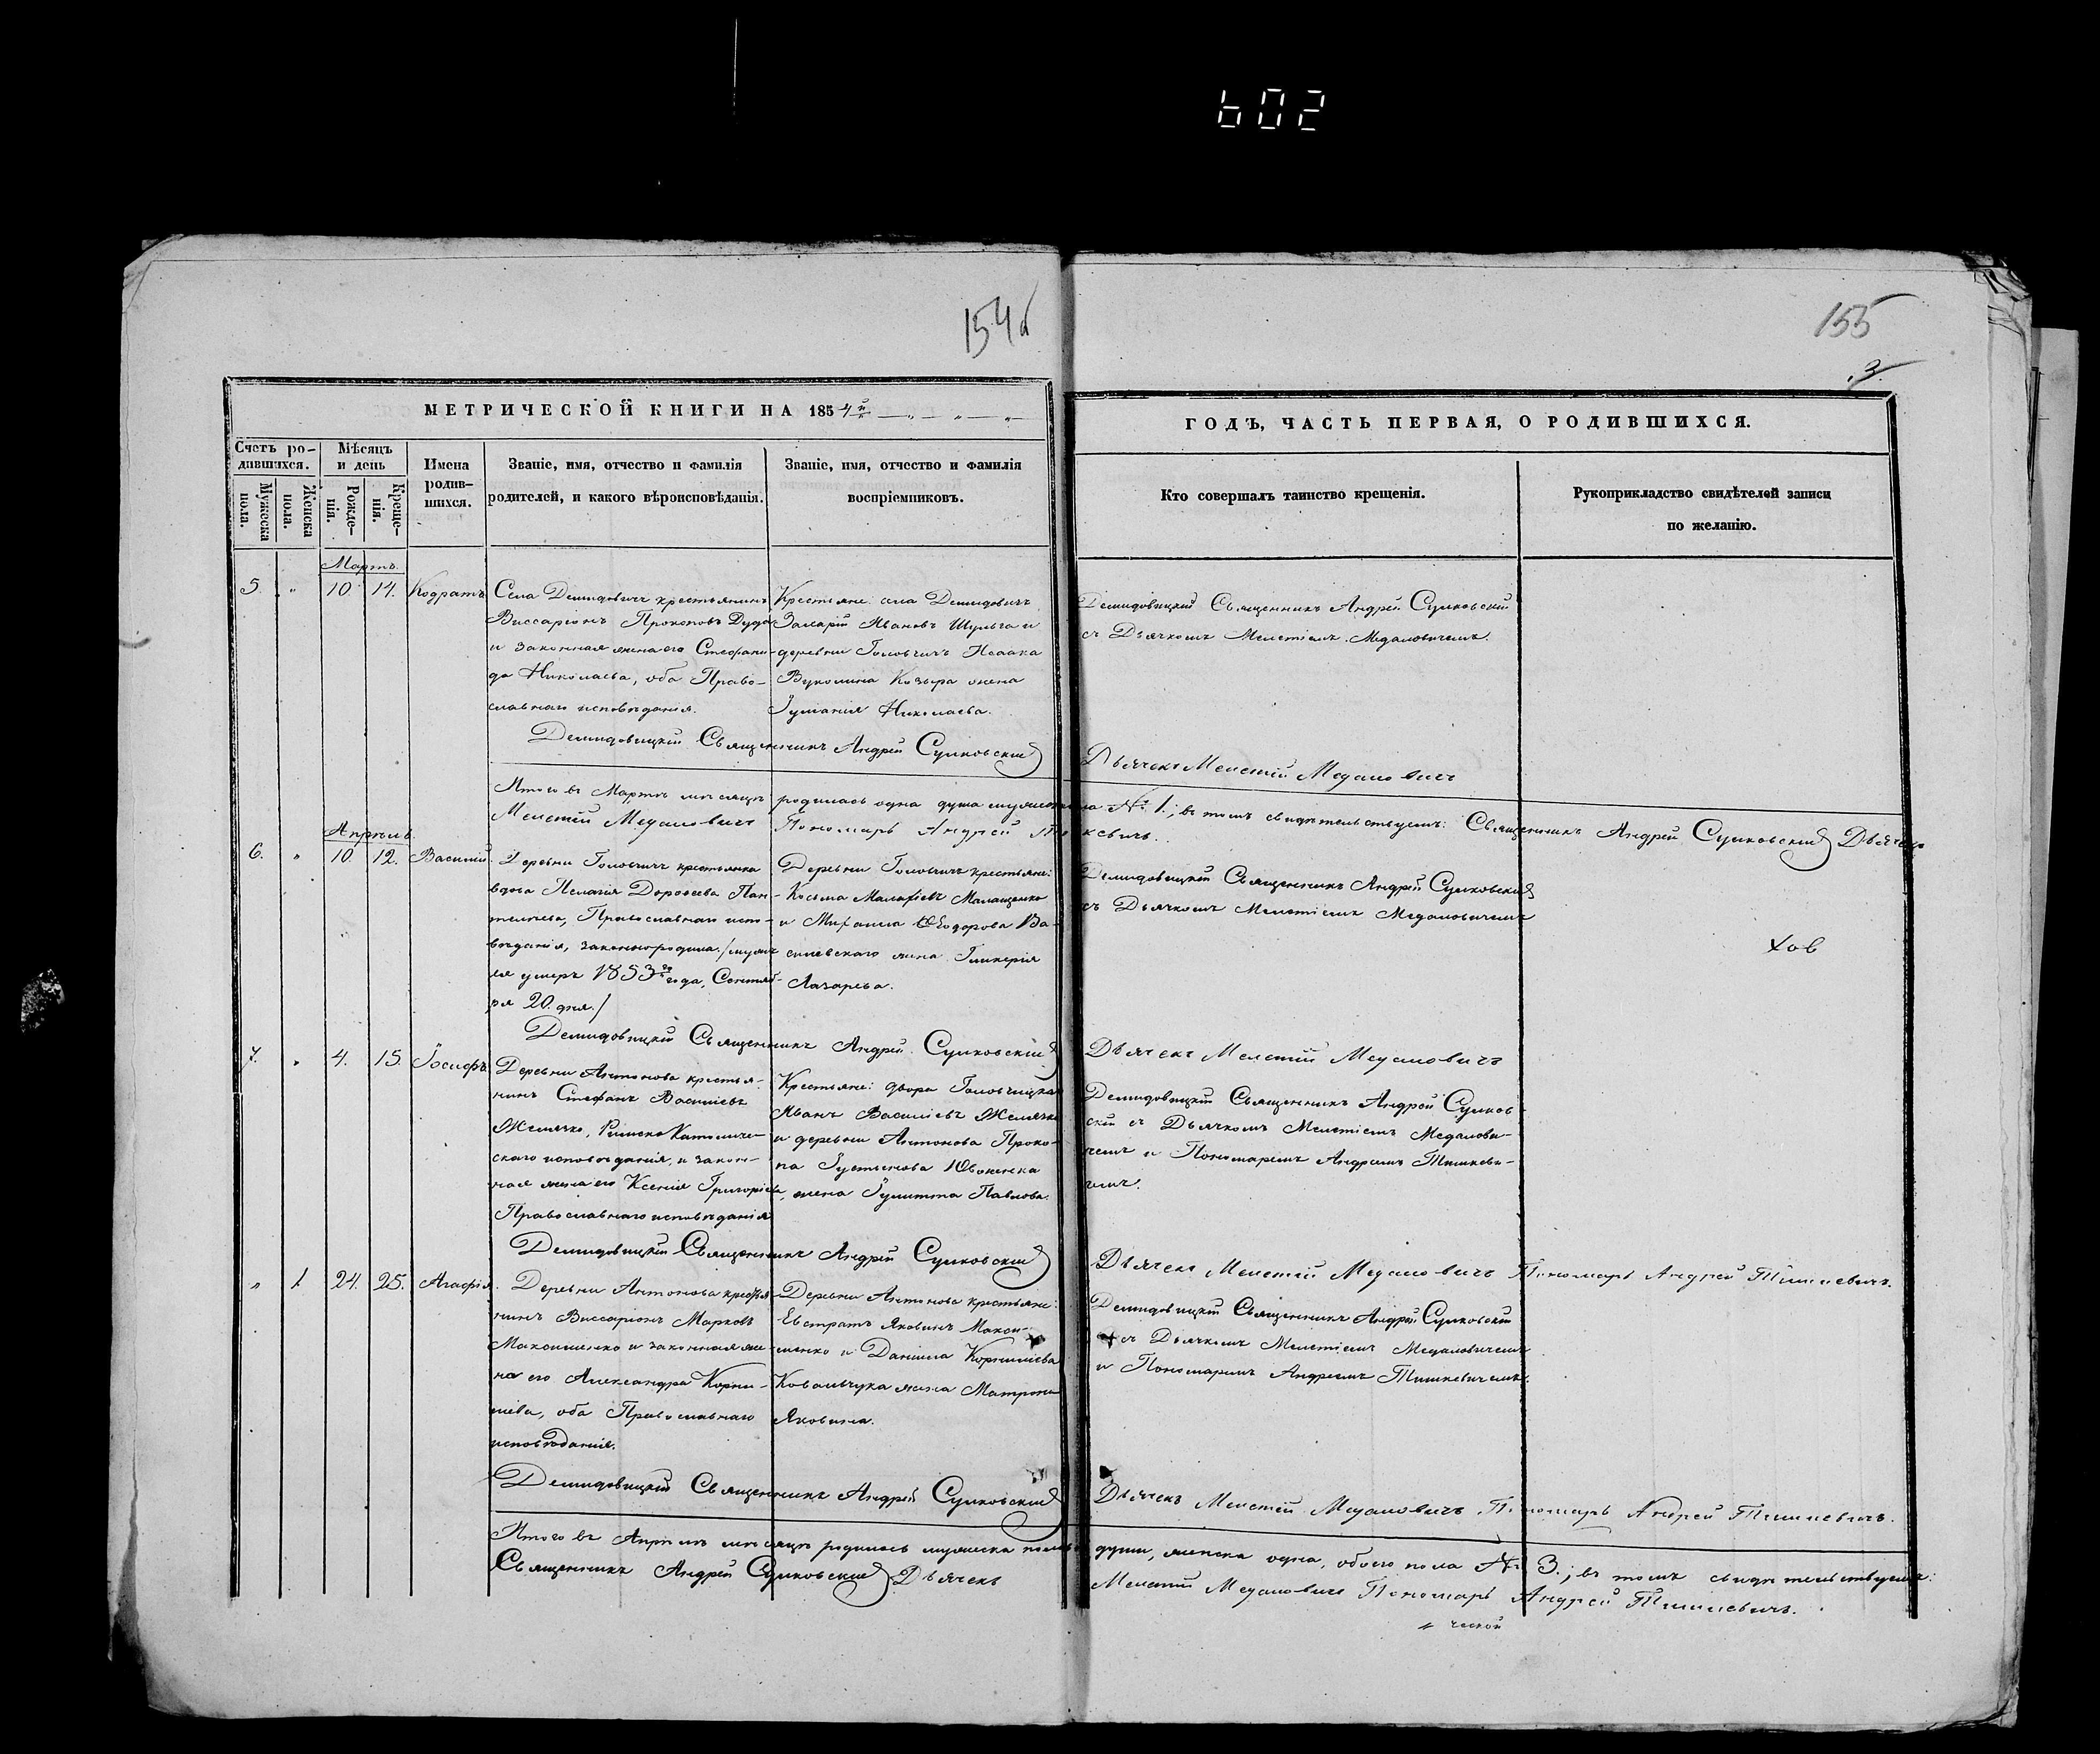 602
154б
155
3.
МЕТРИЧЕСКОЙ КНИГИ НА 1854й
ГОДЪ, ЧАСТЬ ПЕРВАЯ, О РОДИВШИХСЯ.
Счетъ ро-
дившихся.
Мужеска
пола.
Женска
пола.
Мѣсяцъ
и день
Рожде-
нія.
Креще-
нія.
Имена
родив-
шихся.
Званіе, имя, отчество и фамилія
родителей, и какого вѣроисповѣданія.
Званіе, имя, отчество и фамилія
воспріемниковъ.
Кто совершалъ таинство крещенія.
Рукоприкладство свидѣтелей записи
по желанію.
Мартъ.
5 " 10. 14. Кодратъ
Села Демидовичъ крестьянинъ
Виссаріонъ Прокоповъ Дуда
и законная жена его Стефани-
да Николаева, оба Право-
славнаго исповѣданія.
Крестьяне: села Демидовичъ
Ивановъ Шульга и
деревни Головчичъ Исаака
Вуколина Козыра жена
Іуліанія Николаева.
Демидовицкій Священникъ Андрей Сулковскій
съ Дьячкомъ Мелетіемъ Медаловичемъ.
Демидовицкій Священникъ Андрей Сулковскій
Дьячекъ Мелетій Медаловичъ
Итого въ Мартѣ мѣсяцѣ родилась одна душа мужеска пола № 1.; въ томъ свидѣтельствуемъ: Священникъ Андрей Сулковскій Дьячекъ
Мелетій Медаловичъ Пономарь Андрей Тишкевичъ.
Апрѣль.
6. " 10 12. Василій.
Деревни Головчичъ крестьянка
вдова Пелагія Дорофеева Пан-
телѣева, Православнаго испо-
вѣданія, законнородила. /мужъ
ея умеръ 1853го года, Сентяб-
ря 20. дня./
Деревни Головчичъ крестьяне:
Косьма Малахіевъ Малащенко
и Михаила Ѳеодорова Ва-
силевскаго жена Гликерія
Лазарева.
Демидовицкій Священникъ Андрей Сулковскій
съ Дьячкомъ Мелетіемъ Медаловичемъ
Демидовицкій Священникъ Андрей Сулковскій
Дьячекъ Мелетій Медаловичъ
7. " 4. 15. Іосифъ.
Деревни Антонова крестья-
нинъ Стефанъ Василіевъ
Желячко, Римско Католиче-
скаго исповѣданія, и закон-
ная жена его Ксенія Григоріева,
Православнаго исповѣданія
Крестьяне: двора Головчицка
Иванъ Василіевъ Желячко
и деревни Антонова Проко-
па Іустинова Ювженка
жена Іулитта Павлова.
Демидовицкій Священникъ Андрей Сулков-
скій съ Дьячкомъ Мелетіемъ Медалови-
чемъ и Пономаремъ Андреемъ Тишкеви-
чемъ.
Демидовицкій Священникъ Андрей Сулковскій
Дьячекъ Мелетій Медаловичъ Пономарь Андрей Тишкевичъ.
" 1. 24. 25. Агафія.
Деревни Антонова крестья-
нинъ Виссаріонъ Марковъ
Максименко и законная же-
на его Александра Корни-
лиева, оба Православнаго
исповѣданія.
Деревни Антонова крестьяне:
Евстратъ Яковинъ Макси-
менко и Даніила Корниліева
Ковальчука жена Матрона
Яковина.
Демидовицкій Священникъ Андрей Сулковскій
съ Дьячкомъ Мелетіемъ Медаловичемъ
и Пономаремъ Андреемъ Тишкевичемъ.
Демидовицкій Священникъ Андрей Сулковскій
Дьячекъ Мелетій Медаловичъ Пономарь Андрей Тишкевичъ.
Итого въ Апрѣлѣ мѣсяцѣ родилось мужеска пола двѣ души, женска одна, обоего пола № 3.; въ томъ свидѣтельствуемъ:
Священникъ Андрей Сулковскій Дьячекъ Мелетій Медаловичъ Пономарь Андрей Тишкевичъ.
ческой